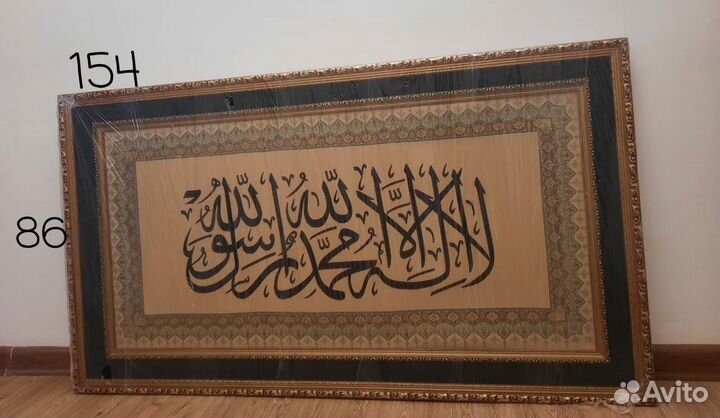 154
86
لا إله إلا الله محمد رسول الله
Avito